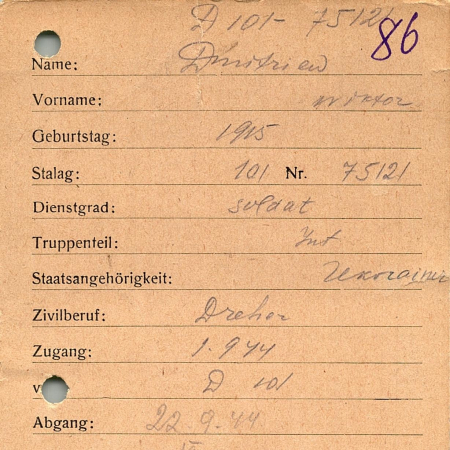 D 101- 75121
86
Name: Dmitriew
Vorname: Wiktor
Geburtstag: 1915
Stalag: 101 Nr. 75121
Dienstgrad: soldat
Truppenteil: Inf
Staatsangehörigkeit:
Zivilberuf: Dreher
Zugang: 1.9 44
v D 101
Abgang: 22.9.44